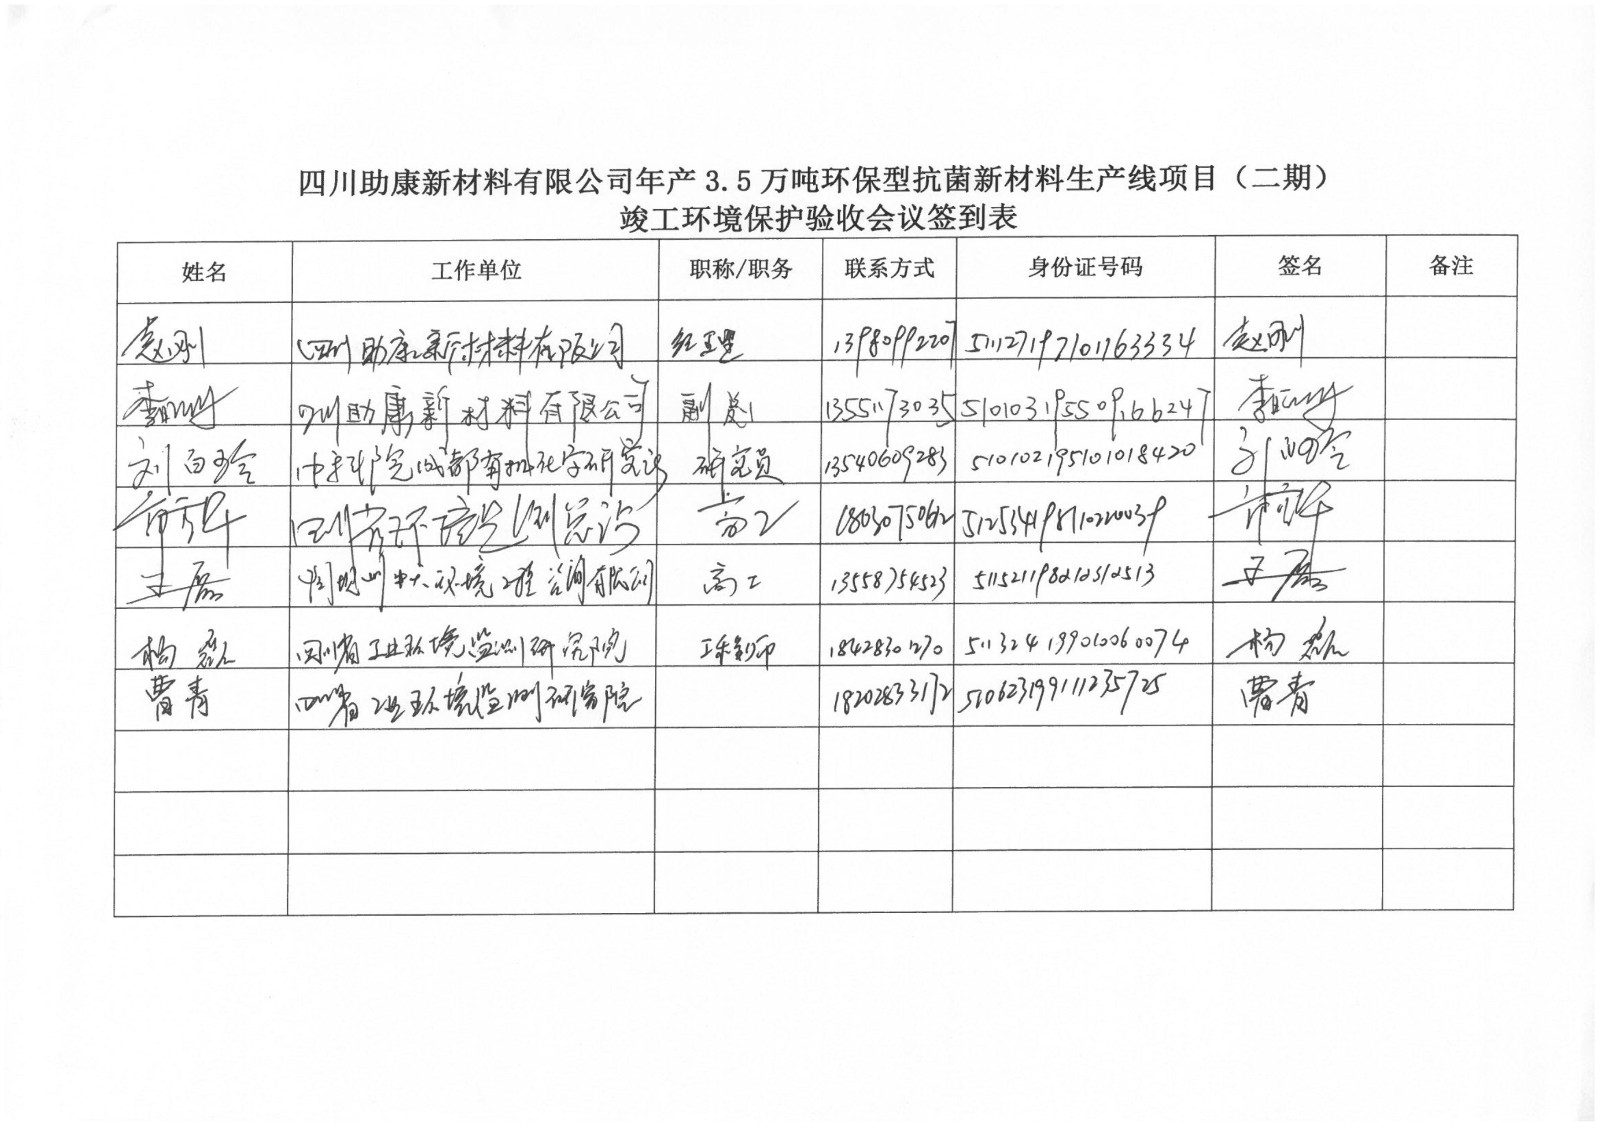 四川助康新材料有限公司年产3.5万吨环保型抗菌新材料生产线项目（二期）
竣工环境保护验收会议签到表
姓名 工作单位 职称/职务 联系方式 身份证号码 签名 备注
赵刚 四川助康新材料有限公司 经理 13980992207 511127197101163334 赵刚
李 四川助康新材料有限公司 副总 13551173035 510103195509166247 李
刘白玲 中科院成都有机化学研究所 研究员 13540609283 510102195101018420 刘白玲
四川省环境监测总站 高工
王磊 环境工程咨询有限公司 高工 13558754523 511521198212312513 王磊
杨磊 四川省工业环境监测研究院 工程师 18428301270 511324199010060074 杨磊
曹青 四川省工业环境监测研究院 18202833172 510623199111235725 曹青